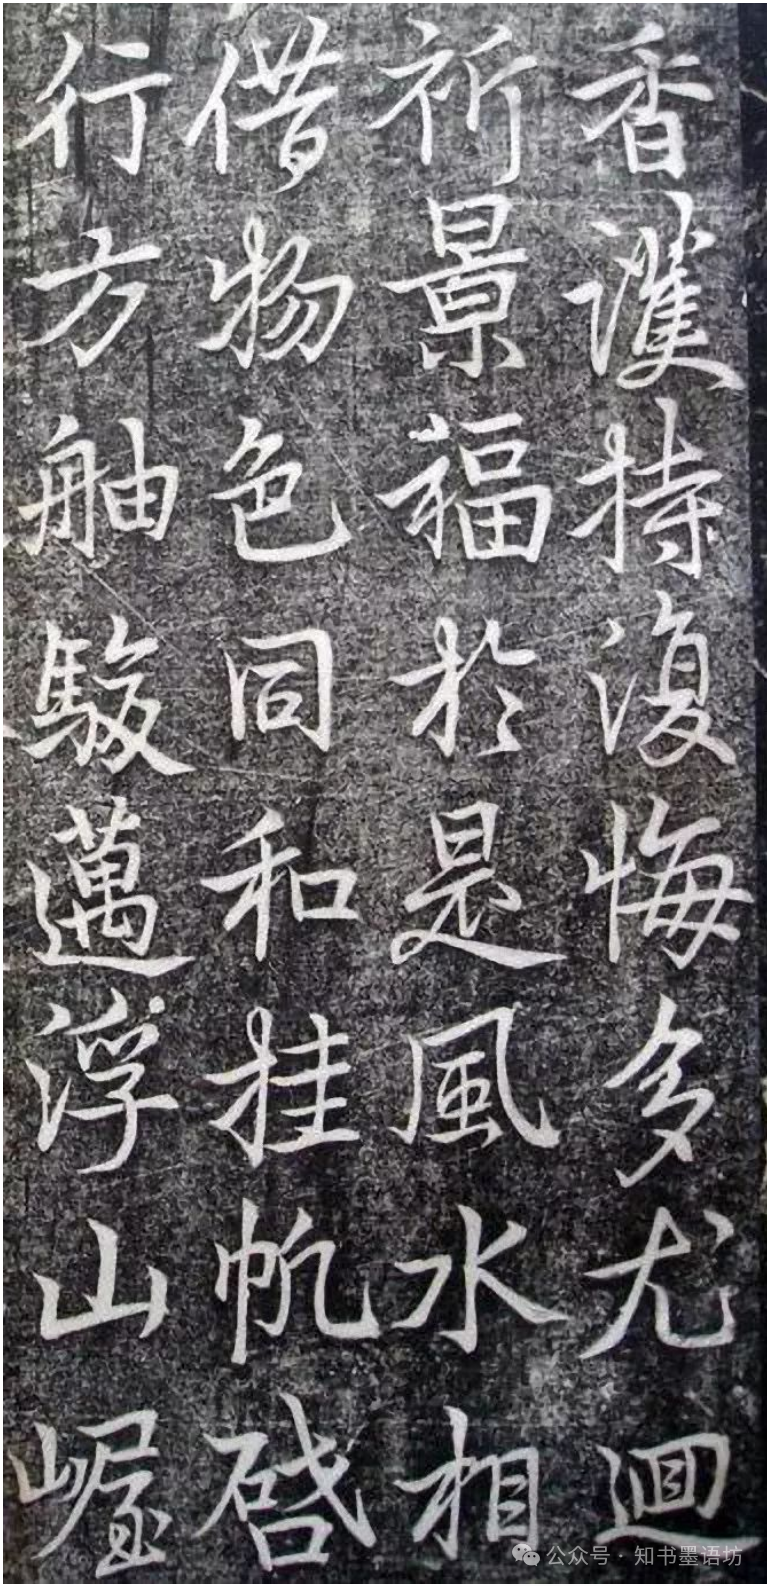 香護持復悔多尤迴
祈景福於是風水相
借物色同和挂帆啓
行方舳駿邁浮山
公众号·知书墨语坊